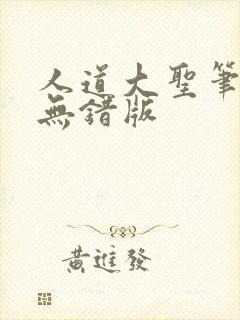 人道大聖筆
無錯版
黃進發